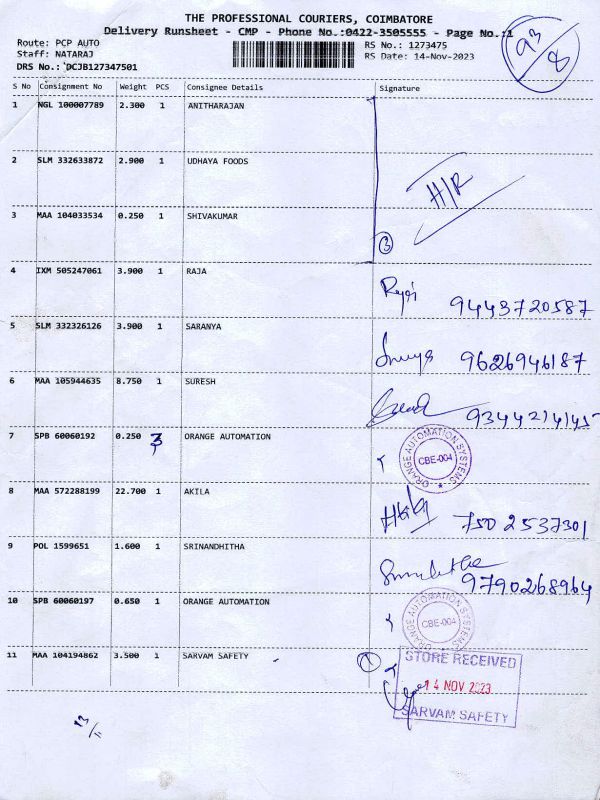 THE PROFESSIONAL COURIERS, COIMBATORE
Delivery Runsheet - CMP - Phone No.:0422-3505555 - Page No.:1
Route: PCP AUTO
Staff: NATARAJ
DRS No.: DCJB127347501
RS No.: 1273475
RS Date: 14-Nov-2023
93/8
S No Consignment No Weight PCS Consignee Details Signature
1 NGL 100007789 2.300 1 ANITHARAJAN
2 SLM 332633872 2.900 1 UDHAYA FOODS
H/R
3 MAA 104033534 0.250 1 SHIVAKUMAR
3
4 IXM 505247061 3.900 1 RAJA
9443720587
5 SLM 332326126 3.900 1 SARANYA
9626946187
6 MAA 105944635 8.750 1 SURESH
7 SPB 60060192 0.250 3 ORANGE AUTOMATION
ORANGE AUTOMATION SYSTEMS
CBE-004
8 MAA 572288199 22.700 1 AKILA
Akila 7502537301
9 POL 1599651 1.600 1 SRINANDHITHA
9790268964
10 SPB 60060197 0.650 1 ORANGE AUTOMATION
ORANGE AUTOMATION SYSTEMS
CBE-004
11 MAA 104194862 3.500 1 SARVAM SAFETY
1
STORE RECEIVED
14 NOV 2023
SARVAM SAFETY